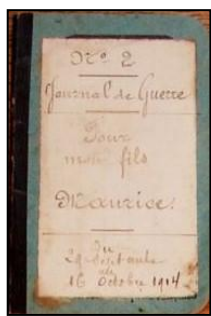 N° 2
Journal de Guerre
Pour
mon fils
Maurice.
Du
29
au
16 Octobre 1914